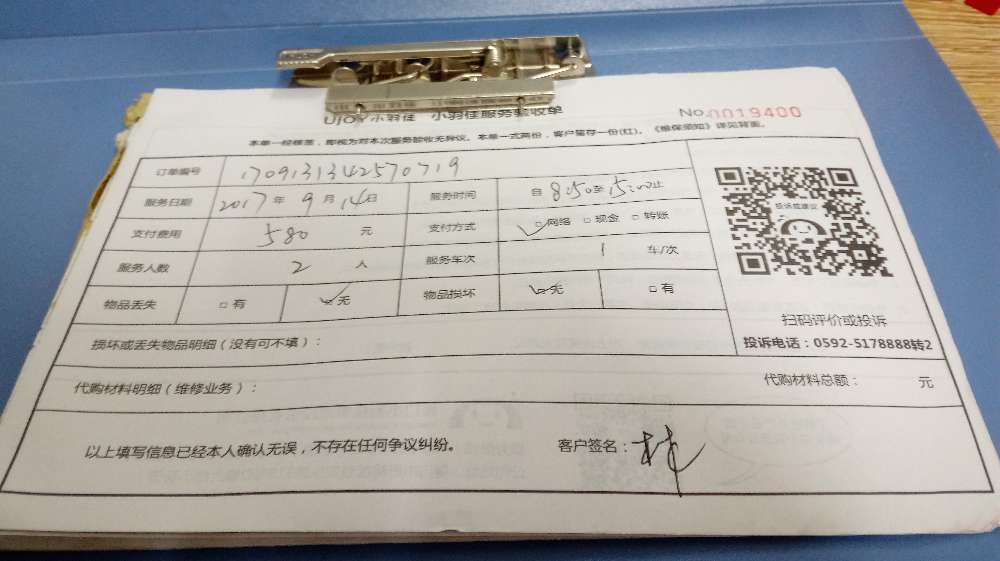 UjOY小羽佳 小羽佳服务验收单 No.0019400
本单一经核签，即视为对本次服务验收无异议。本单一式两份，客户留存一份(红)。《维保须知》详见背面。
订单编号 1709131342570719
服务日期 2017年9月14日 服务时间 自8:50至15:00止
支付费用 580 元 支付方式 ☑网络 □现金 □转账
服务人数 2 人 服务车次 1 车/次
物品丢失 □有 ☑无 物品损坏 ☑无 □有
投诉或建议
扫码评价或投诉
投诉电话：0592-5178888转2
损坏或丢失物品明细（没有可不填）：
代购材料明细（维修业务）： 代购材料总额： 元
以上填写信息已经本人确认无误，不存在任何争议纠纷。 客户签名：